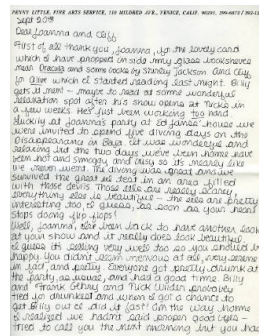 PENNY LITTLE, FINE ARTS SERVICE, 119 MILDRED AVE., VENICE, CALIF. 90291,
Sept 20th
Dear Joanna and Cliff
First of all thank you, Joanna, for the lovely card
which I have propped in side my glass bookshelves
near Dracula and some books by Shirley Jackson. And Cliff,
for which I started reading last night. Billy
gets it next - maybe to read at some wonderful
relaxation spot after his show opens at Nicks in
a few weeks. He's just been working too hard
at James' house we
were invited to spend five diving days on the
in Baja. It was wonderful and
relaxing but the two days we've been home have
been hot and smoggy and busy so its nearly like
we never went. The diving was great and we
survived the great in an area filled
with those devils. Those are really scary,
everything else is beautiful - the are pretty
interesting too I guess, as soon as your heart
stops doing flip flops!
Well, Joanna, I've been back to have another look
at your show and it really does look beautiful
I guess its selling very well too so you should be
happy. You didn't seem nervous at all, very serene
in fact, and pretty. Everyone got pretty drunk at
the party, as usual, and had a good time. Billy
and Frank Gehry and Nick Wilder provably
tied for drunkest and when I got a chance to
get Billy out I did it fast! On the way home
I realized we hadn't said proper good byes -
tried to call you the next morning but you had